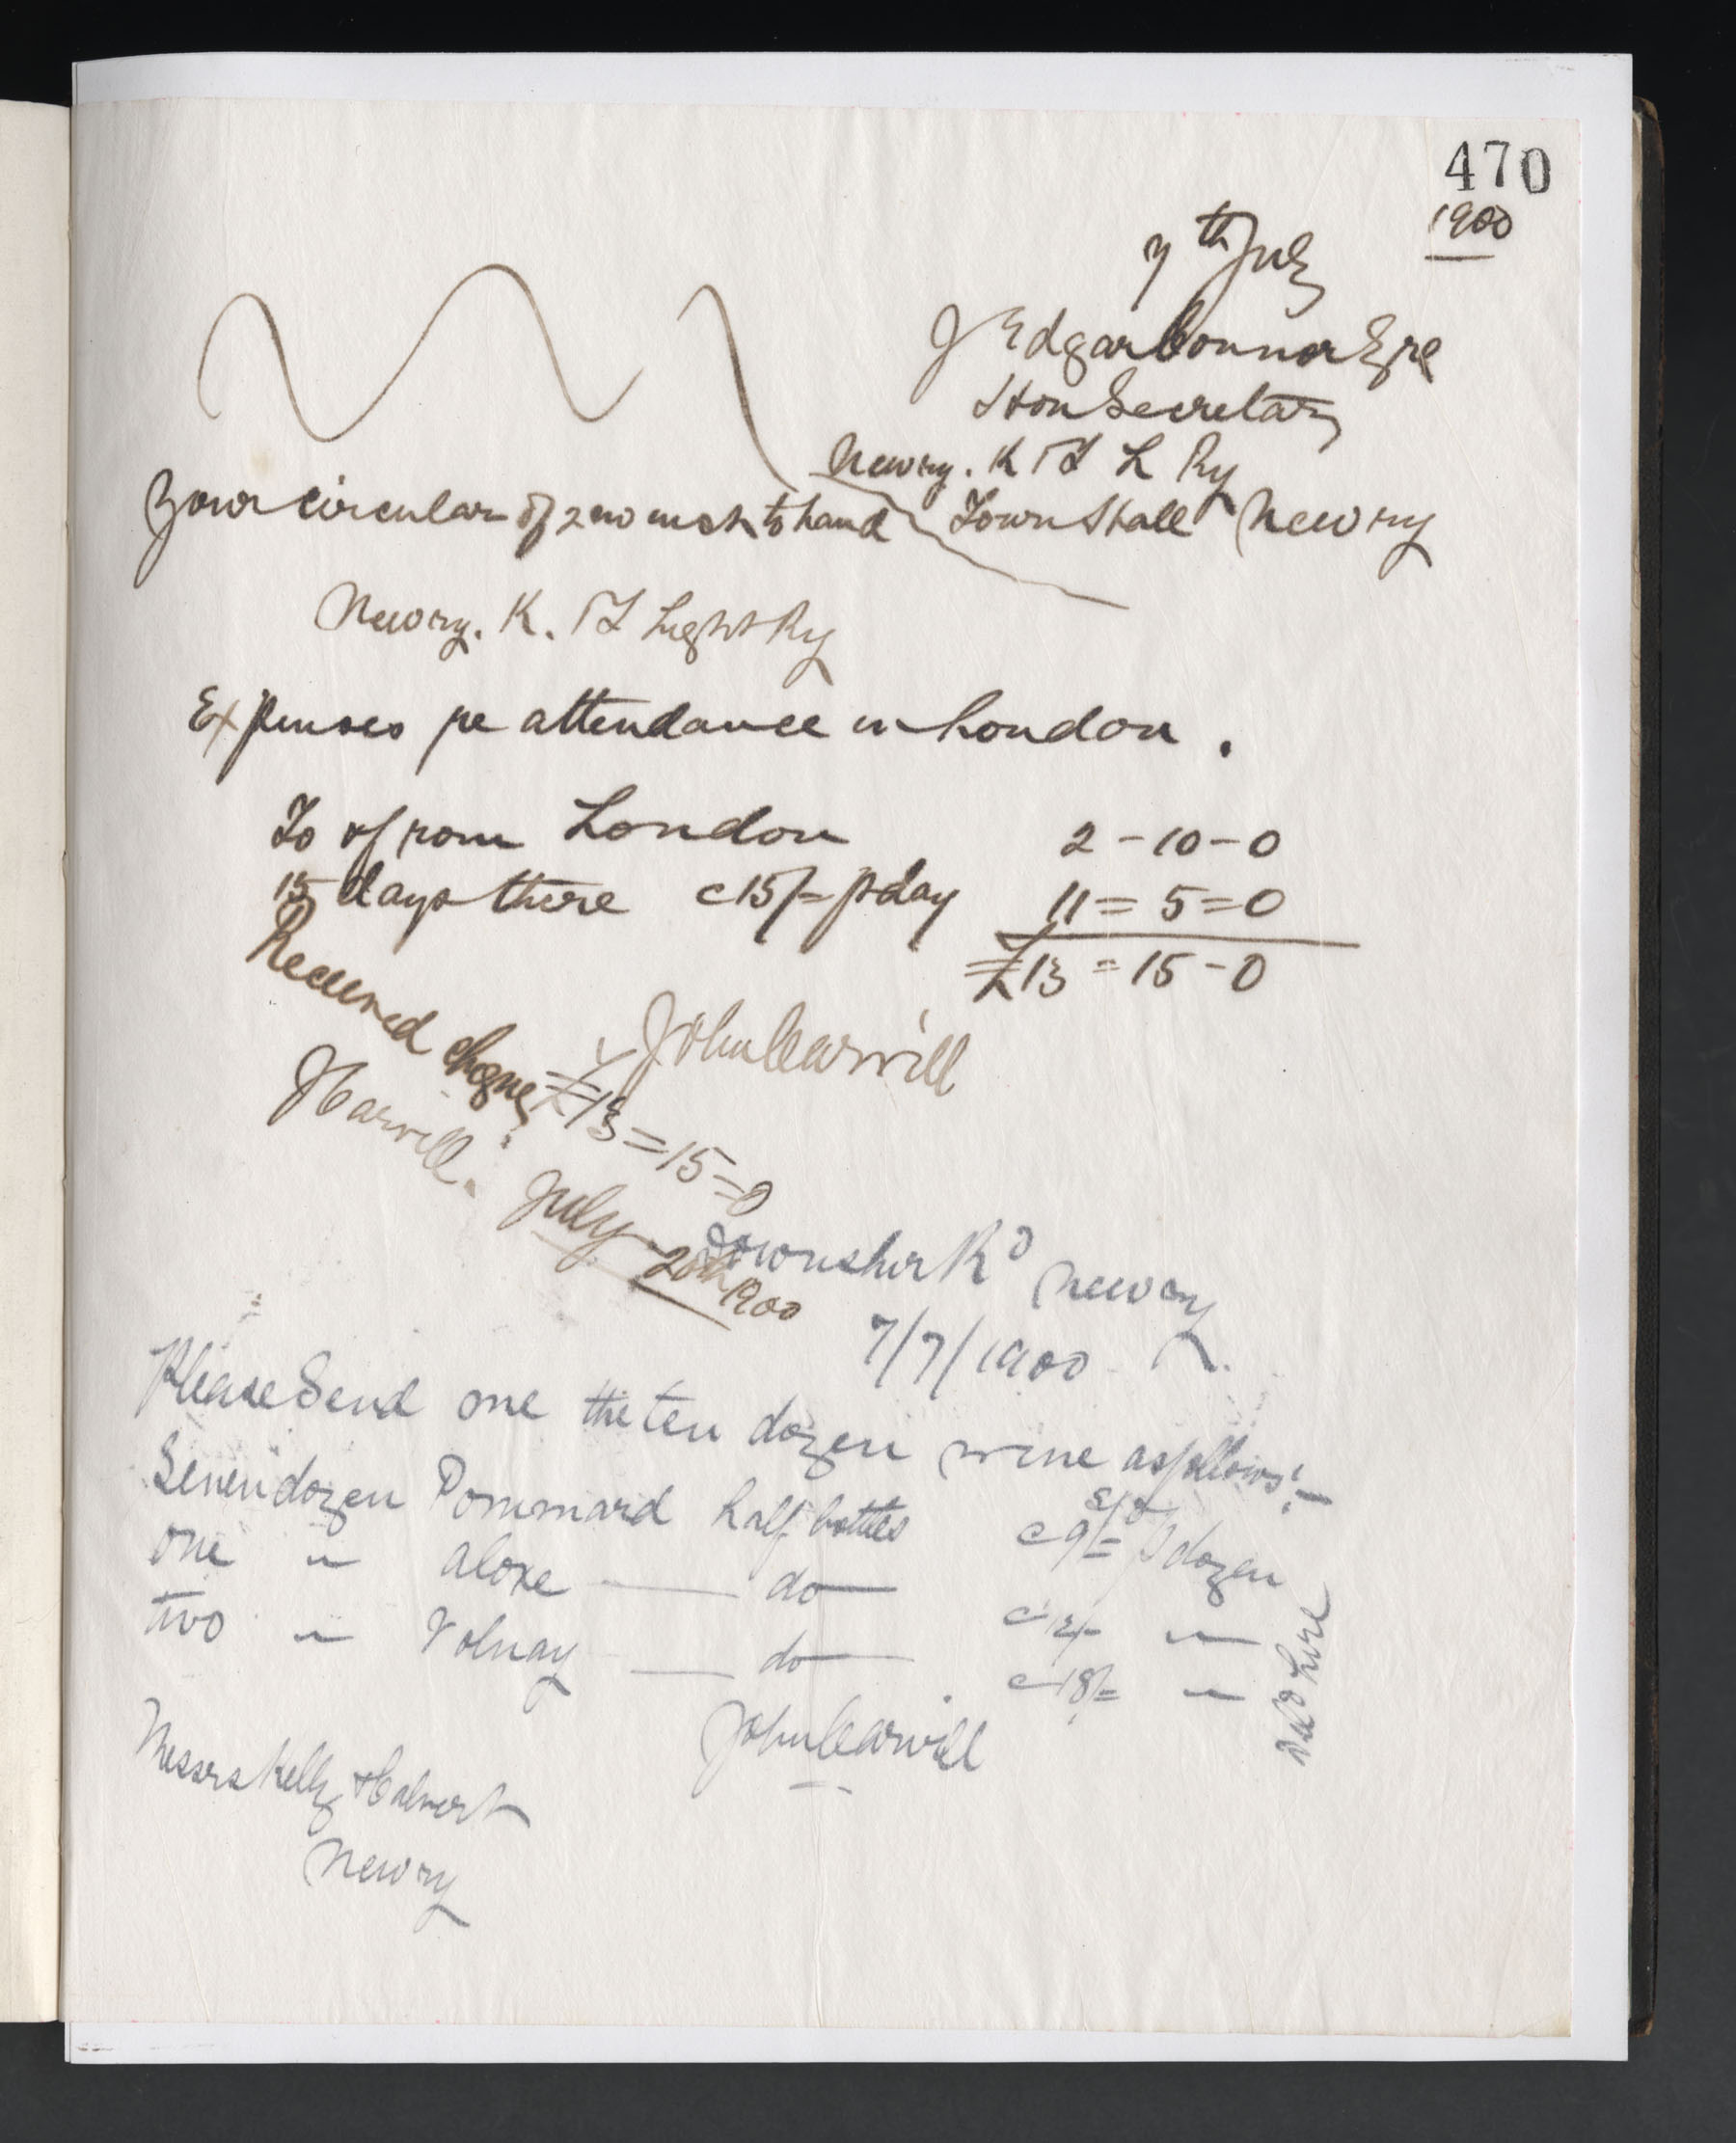 470
1900
7th July
J Edgar Connor Esqre
Hon Secretary
Newry. K & T L Ry
Your circular of 2nd inst to hand Town Hall Newry
Newry. K. & T Light Ry
Expenses re attendance in London.
To & from London 2-10-0
15 days there @ 15/- p day 11=5=0
£13=15-0
John Carvill
Received cheque £13=15=0
JCarvill. July 20th 1900
Downshire Rd Newry
7/7/1900
Please Send me the ten dozen wine as follows:-
Seven dozen Pommard half bottles @ 9/= p dozen
One " Aloxe do @ 12/- "
two " Volnay do @ 18/= "
Deld here
John Carvill
Messrs Kelly & Calvert
Newry